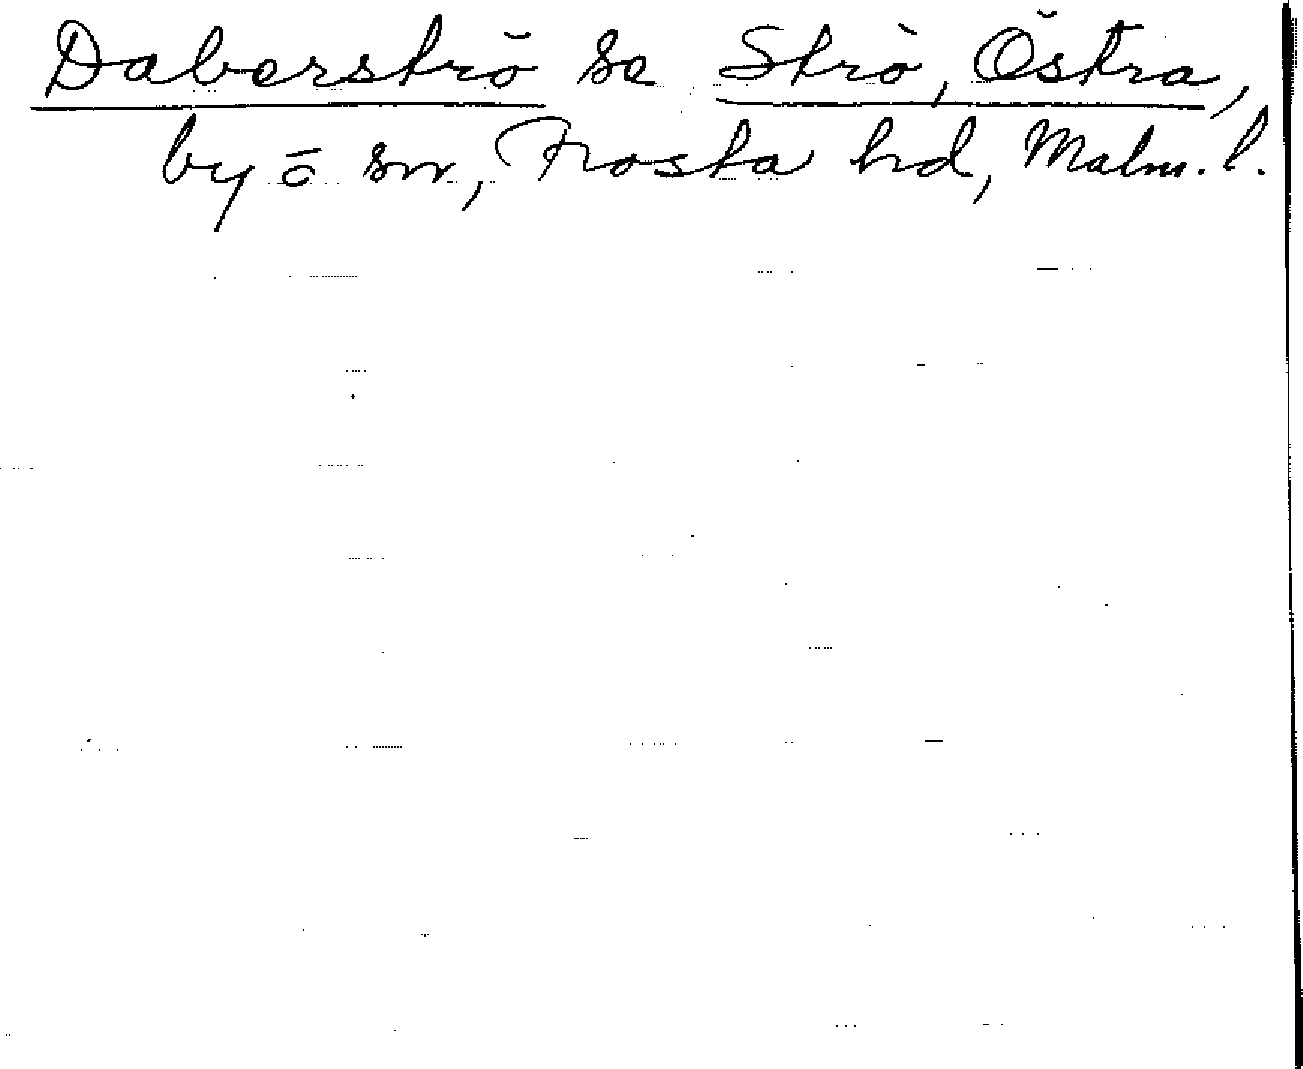 Daberströ se Strö, Östra,
by o sn, Frosta hd, Malm. l.